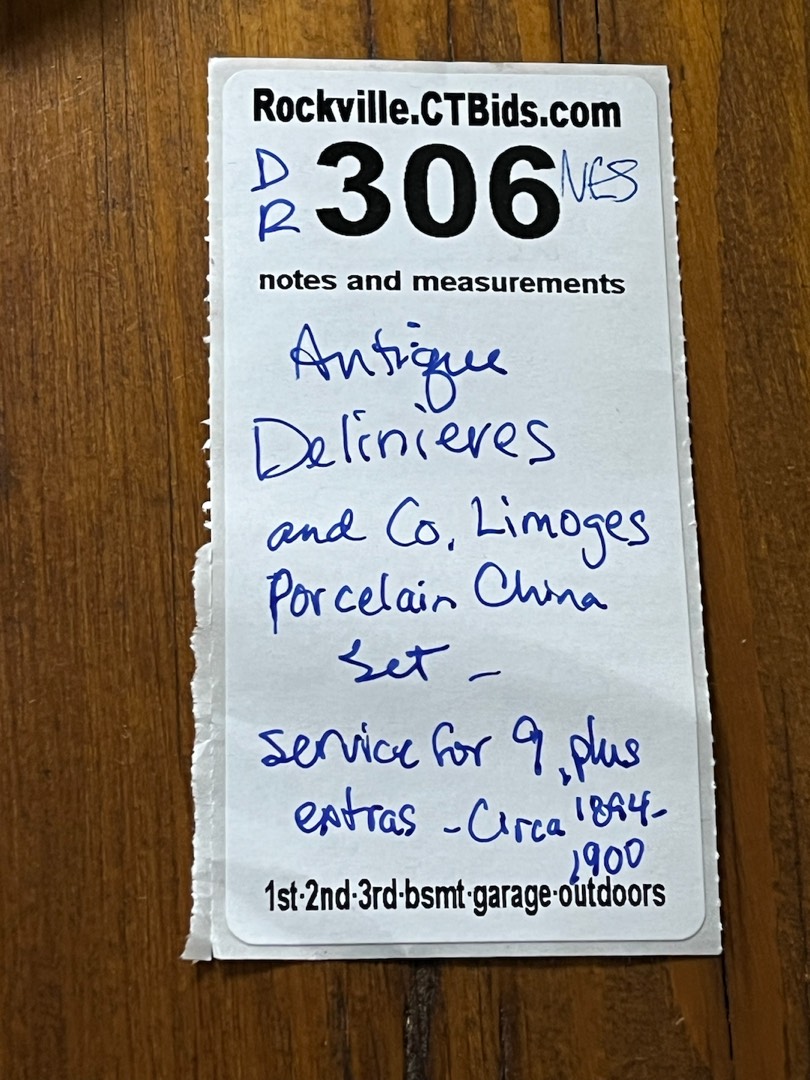 Rockville.CTBids.com
D
R
306
NES
notes and measurements
Antique
Delinieres
and Co. Limoges
Porcelain China
Set -
service for 9, plus
extras - Circa 1894-
1900
1st·2nd·3rd·bsmt·garage·outdoors